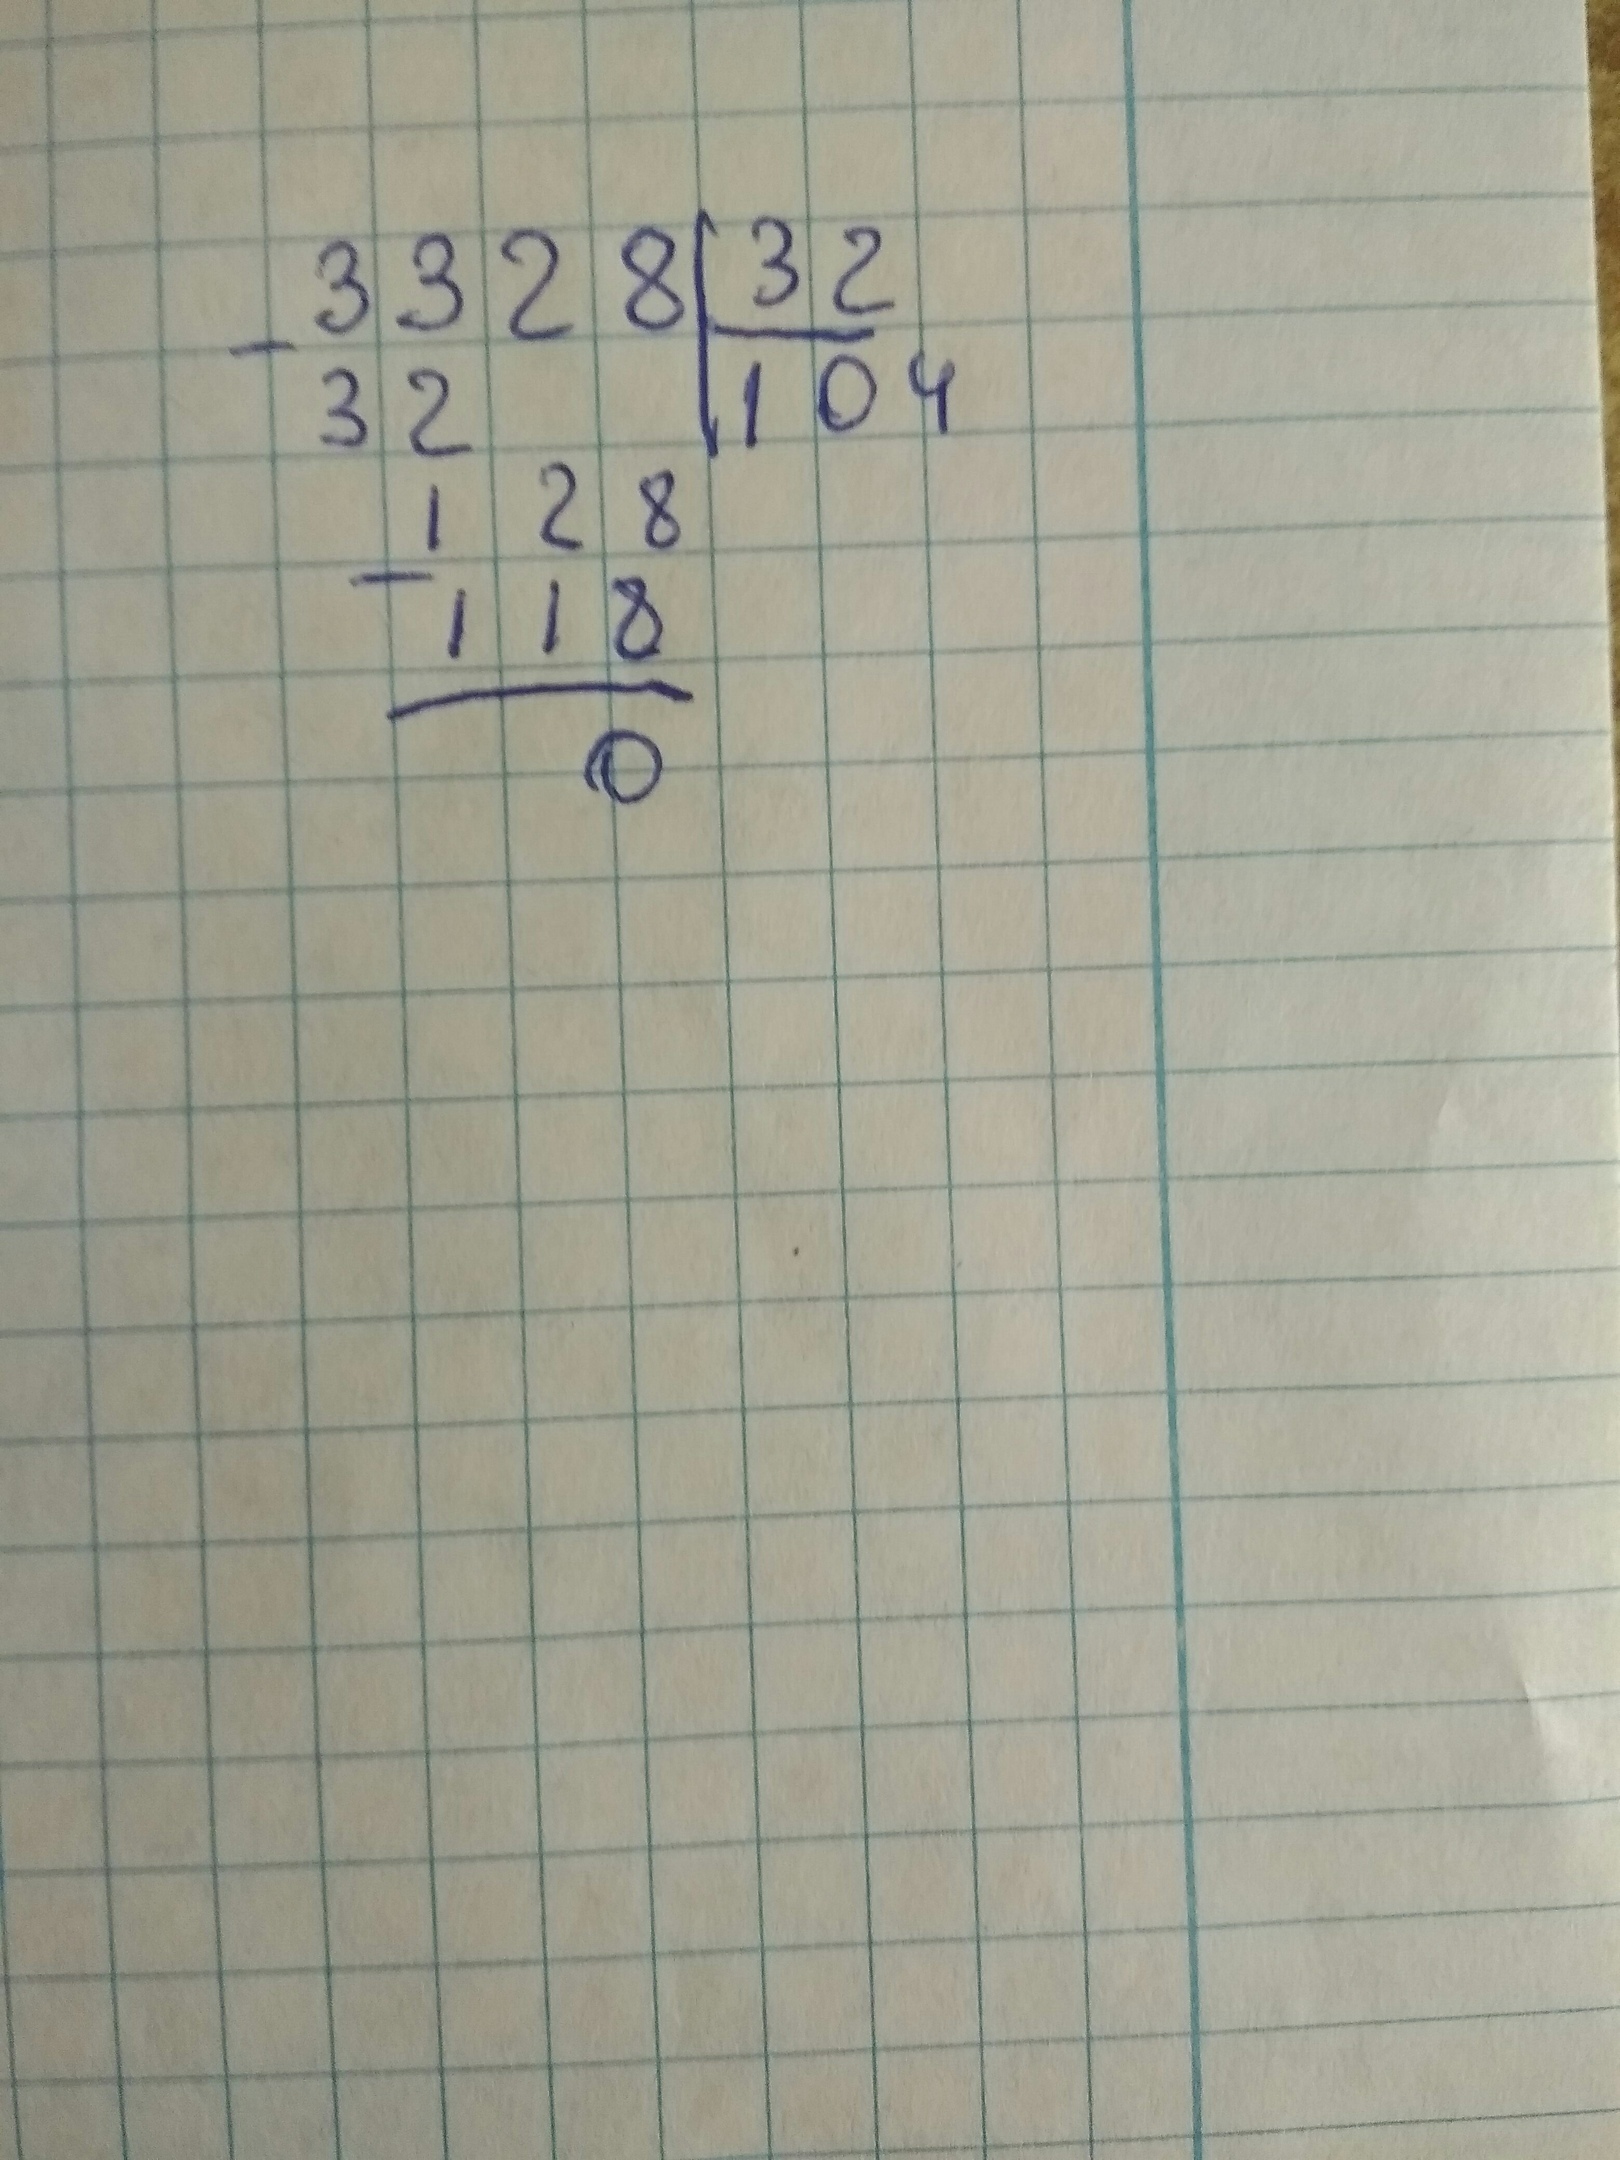 3328 32
- 32 104
128
- 118
0